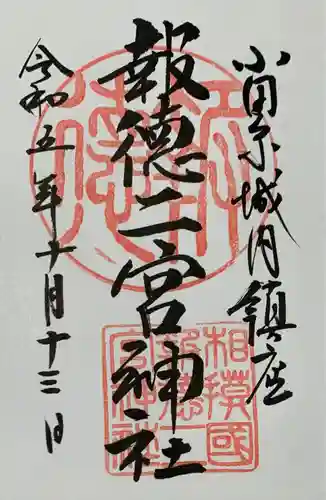 小田原城内鎮座
報徳二宮神社
令和五年十月十三日
相模國
報徳二
宮神社